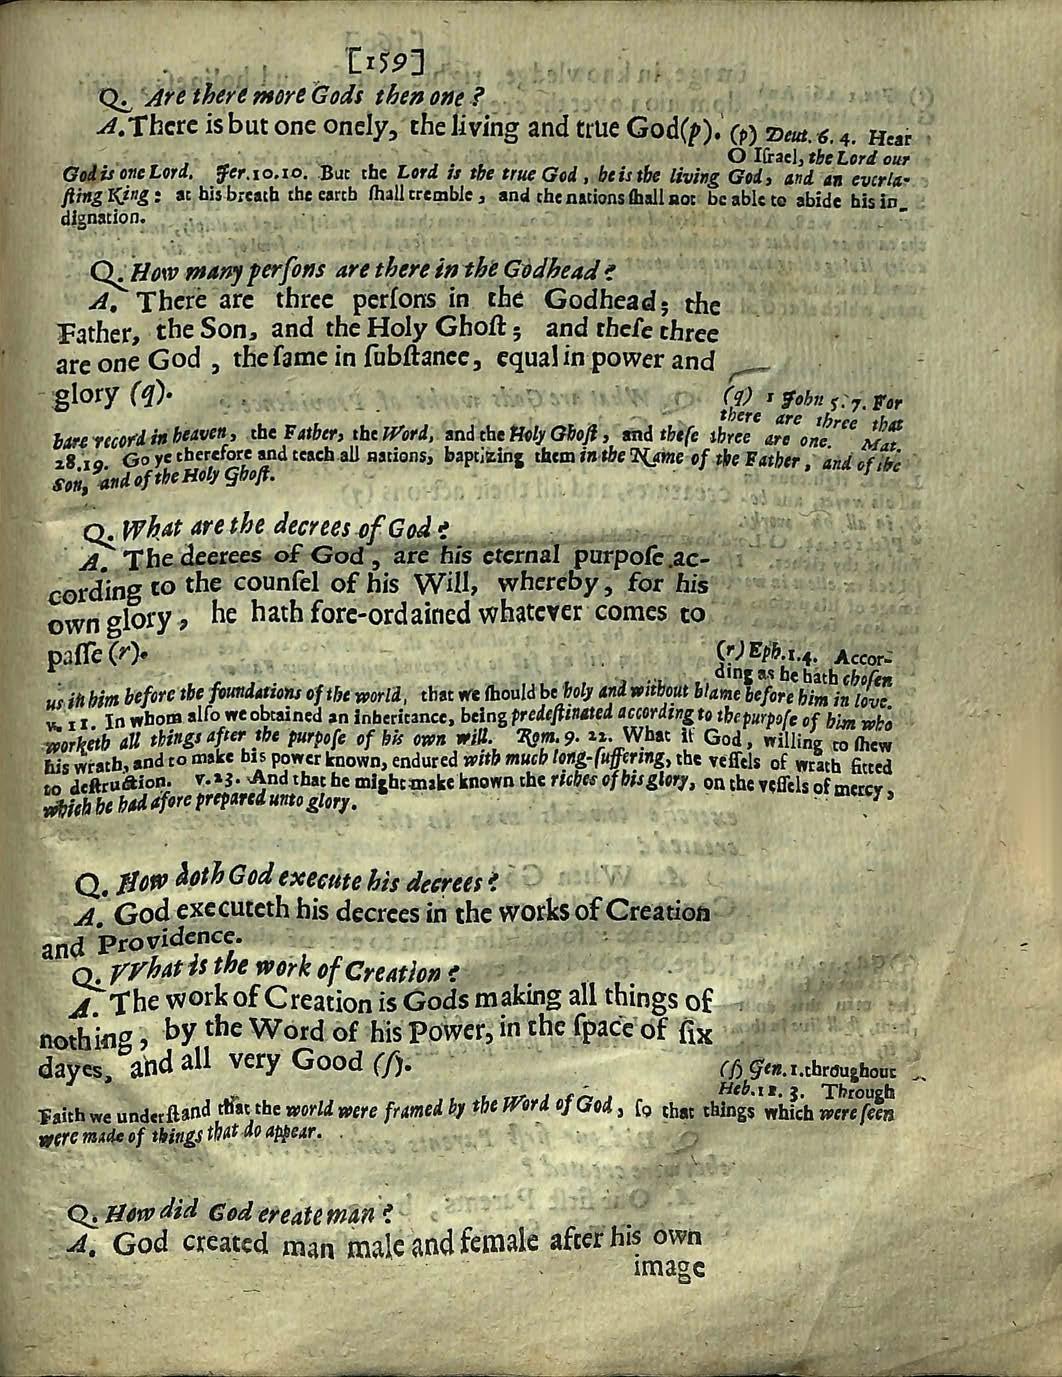 [159]
Q. Are there more Gods then one ?
A. There is but one onely, the living and true God (p). (p) Deut. 6. 4. Hear
O Iſrael, the Lord our
God is one Lord. Jer. 10. 10. But the Lord is the true God, he is the living God, and an everla-
ſting King : at his breath the earth ſhall tremble, and the nations ſhall not be able to abide his in-
dignation.
Q. How many perſons are there in the Godhead ?
A. There are three perſons in the Godhead; the
Father, the Son, and the Holy Ghoſt ; and theſe three
are one God, the ſame in ſubſtance, equal in power and
glory (q).
(q) 1 John 5. 7. For
there are three that
bare record in heaven, the Father, the Word, and the Holy Ghoſt, and theſe three are one. Mat.
28.19. Go ye therefore and teach all nations, baptizing them in the Name of the Father, and of the
Son, and of the Holy Ghoſt.
Q. What are the decrees of God ?
A. The decrees of God, are his eternal purpoſe ac-
cording to the counſel of his Will, whereby, for his
own glory, he hath fore-ordained whatever comes to
paſſe (r).
(r) Eph. 1. 4. Accor-
ding as he hath choſen
us in him before the foundations of the world, that we ſhould be holy and without blame before him in love.
v. 11. In whom alſo we obtained an inheritance, being predeſtinated according to the purpoſe of him who
worketh all things after the purpoſe of his own will. Rom. 9. 22. What if God, willing to ſhew
his wrath, and to make his power known, endured with much long-ſuffering, the veſſels of wrath fitted
to deſtruction. v. 23. And that he might make known the riches of his glory, on the veſſels of mercy,
which he had afore prepared unto glory.
Q. How doth God execute his decrees ?
A. God executeth his decrees in the works of Creation
and Providence.
Q. VVhat is the work of Creation ?
A. The work of Creation is Gods making all things of
nothing, by the Word of his Power, in the ſpace of ſix
dayes, and all very Good (ſ).
(ſ) Gen. 1. throughout
Heb. 11. 3. Through
Faith we underſtand that the world were framed by the Word of God, ſo that things which were ſeen
were made of things that do appear.
Q. How did God create man ?
A. God created man male and female after his own
image